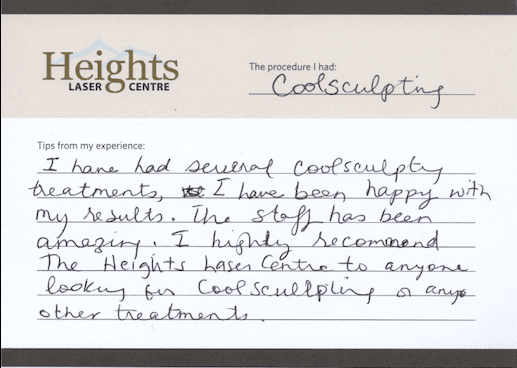 Heights
LASER CENTRE
The procedure I had:
Coolsculpting
Tips from my experience:
I have had several Coolsculptg
treatments, I have been happy with
my results. The staff has been
amazing. I highly recommend
The Heights Laser Centre to anyone
looking for Coolscullpting or any
other treatments.